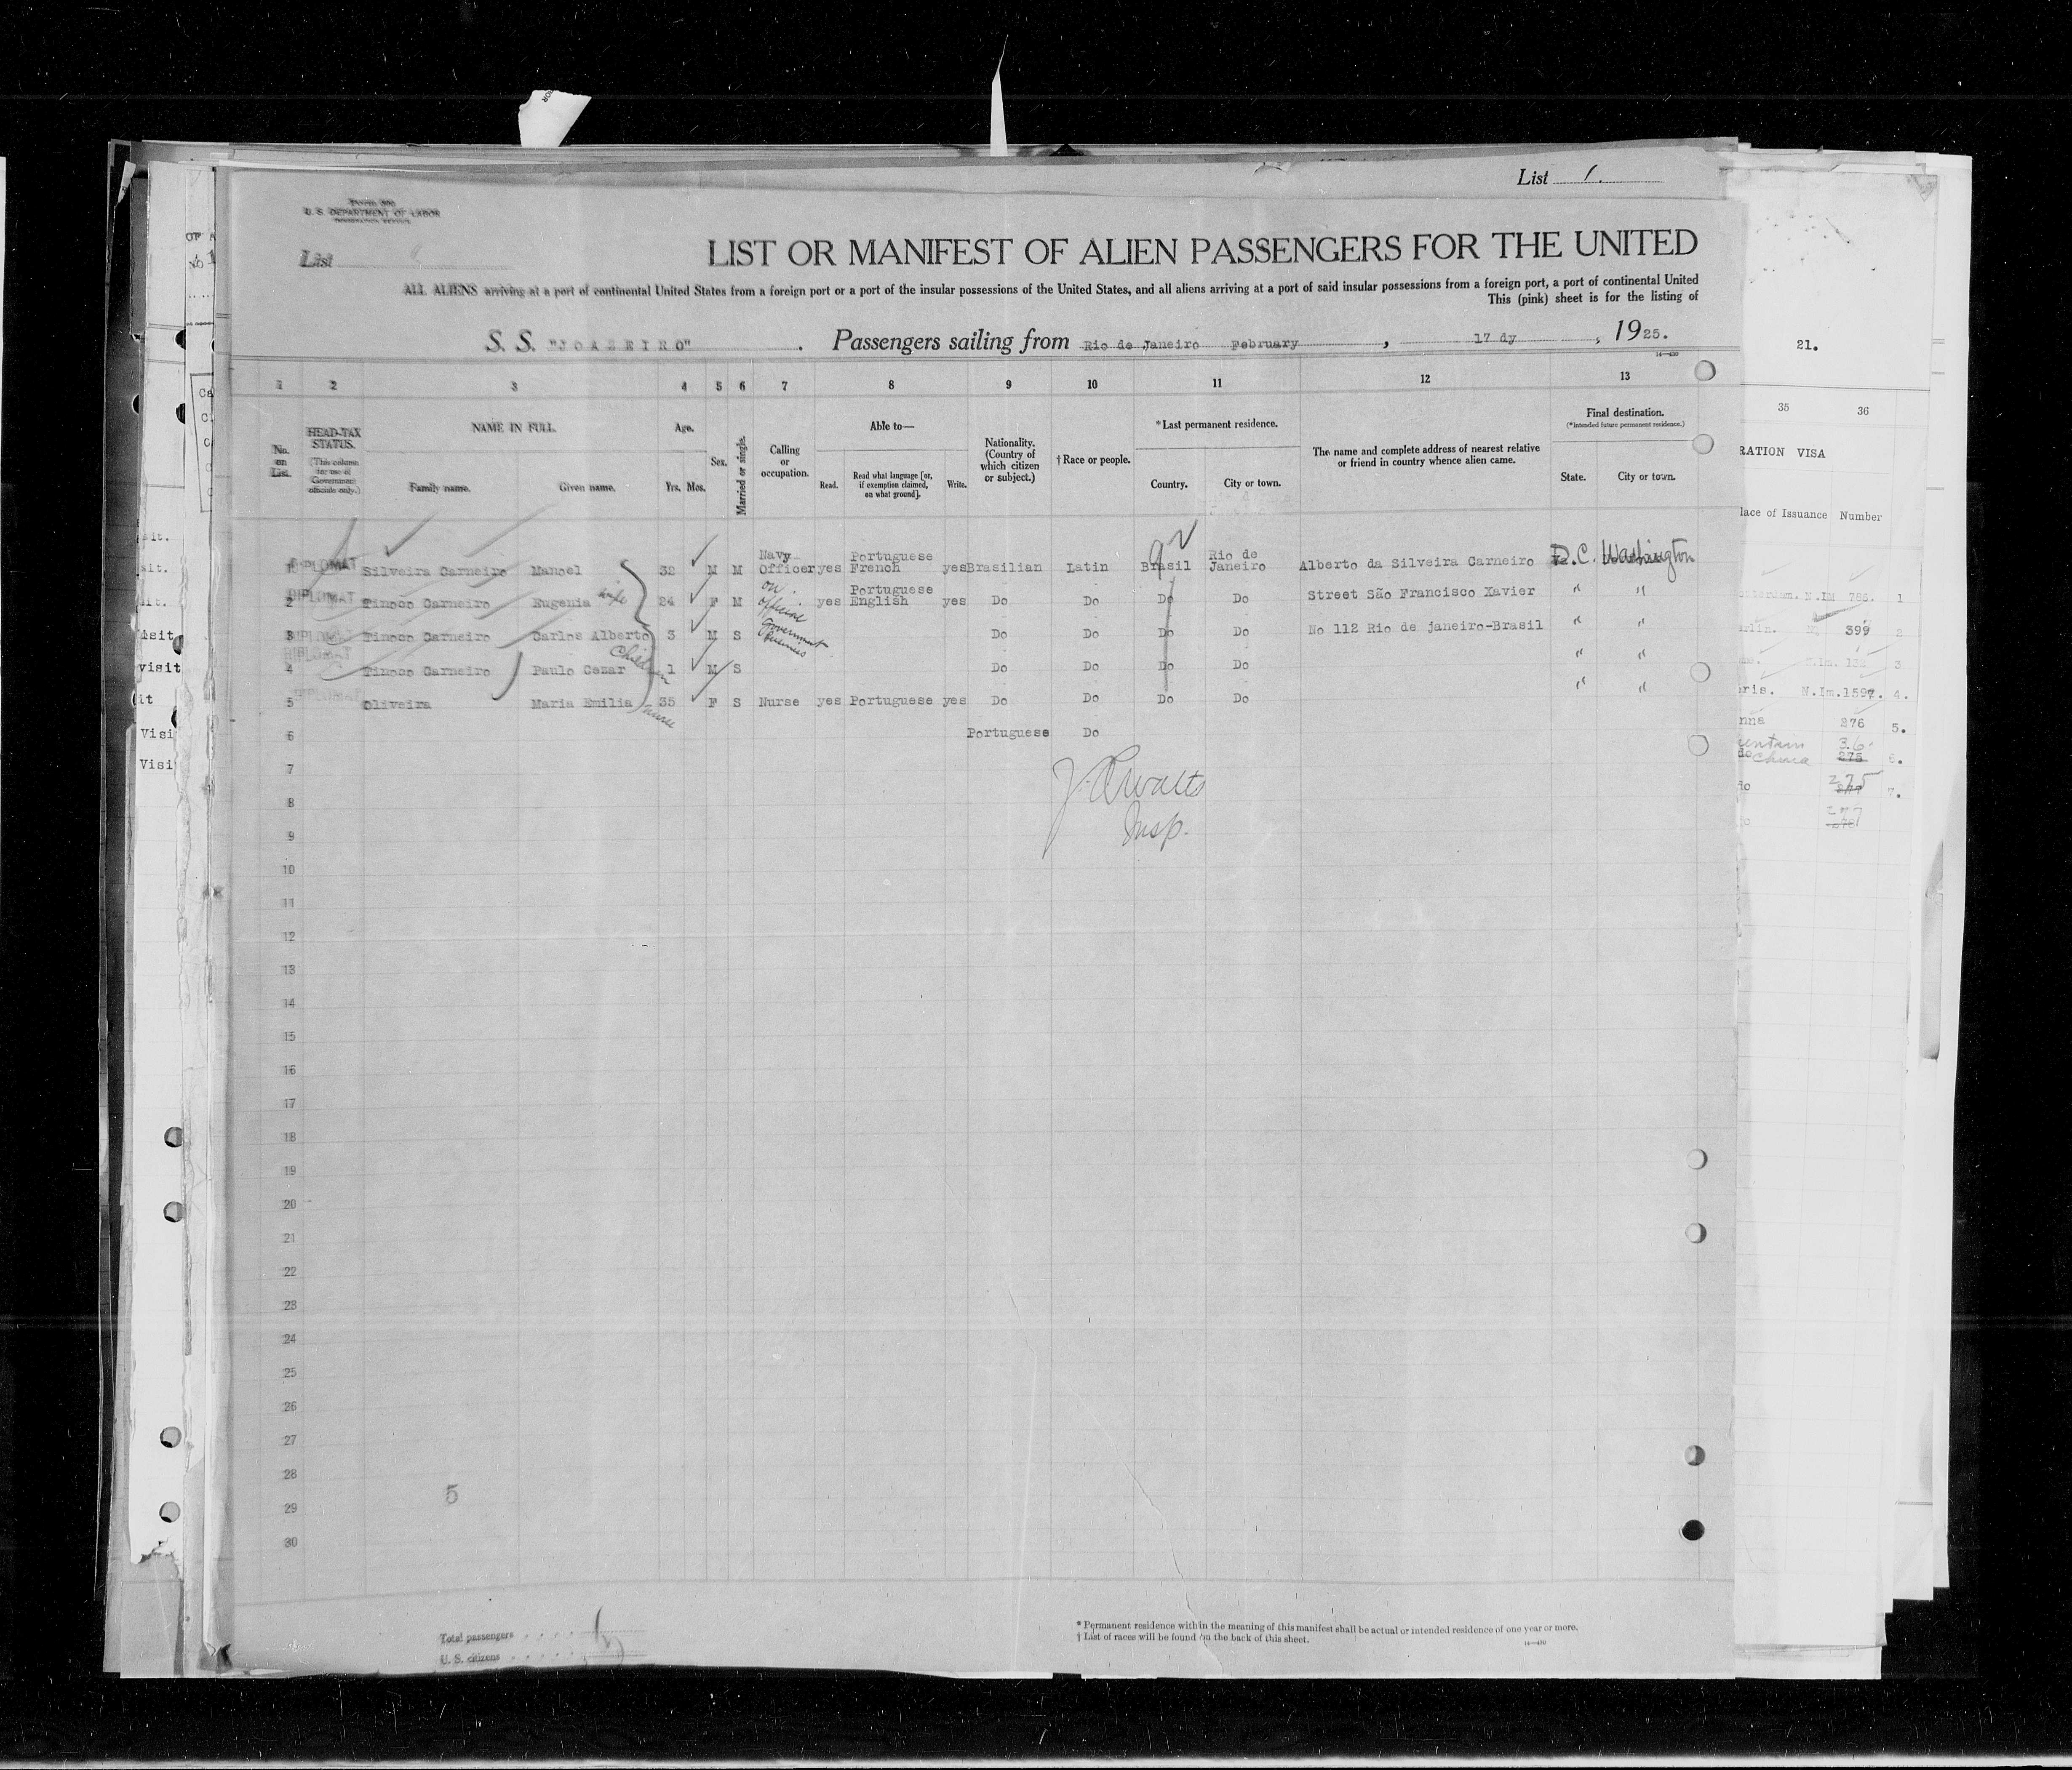 List 1.
Form 500
U. S. DEPARTMENT OF LABOR
IMMIGRATION SERVICE
List
LIST OR MANIFEST OF ALIEN PASSENGERS FOR THE UNITED
ALL ALIENS arriving at a port of continental United States from a foreign port or a port of the insular possessions of the United States, and all aliens arriving at a port of said insular possessions from a foreign port, a port of continental United
This (pink) sheet is for the listing of
S. S. "JOAZEIRO". Passengers sailing from Rio de Janeiro February, 17 dy, 1925.
14—430
1 2 3 4 5 6 7 8 9 10 11 12 13
No. on List.
HEAD-TAX STATUS.
(This column for use of Government officials only.)
NAME IN FULL.
Family name. Given name.
Age.
Yrs. Mos.
Sex.
Married or single.
Calling or occupation.
Able to—
Read. Read what language [or, if exemption claimed, on what ground]. Write.
Nationality. (Country of which citizen or subject.)
†Race or people.
*Last permanent residence.
Country. City or town.
The name and complete address of nearest relative or friend in country whence alien came.
Final destination.
(*intended future permanent residence.)
State. City or town.
1 DIPLOMAT Silveira Carneiro Manoel 32 M M Navy Officer yes Portuguese French yes Brasilian Latin Brasil Rio de Janeiro Alberto da Silveira Carneiro D.C. Washington
2 DIPLOMAT Tinoco Carneiro Eugenia wife 24 F M on official yes Portuguese English yes Do Do Do Do Street São Francisco Xavier " "
3 DIPLOMAT Tinoco Carneiro Carlos Alberto 3 M S Government business Do Do Do Do No 112 Rio de janeiro-Brasil " "
4 DIPLOMAT Tinoco Carneiro Paulo Cezar Children 1 M S Do Do Do Do " "
5 DIPLOMAT Oliveira Maria Emilia nurse 35 F S Nurse yes Portuguese yes Do Do Do Do " "
6 Portuguese Do
7
8
9 Insp.
10
11
12
13
14
15
16
17
18
19
20
21
22
23
24
25
26
27
28
29
30
5
Total passengers
U. S. citizens
* Permanent residence within the meaning of this manifest shall be actual or intended residence of one year or more.
† List of races will be found on the back of this sheet.
14—430
21.
35 36
RATION VISA
lace of Issuance Number
N.IM 786. 1
rlin. 399 2
3
ris. N.Im.1597. 4.
nna 276 5.
do China 276 36 6.
277 275 7.
277
sit.
sit.
it.
isit
visit
it
Visi
Visi